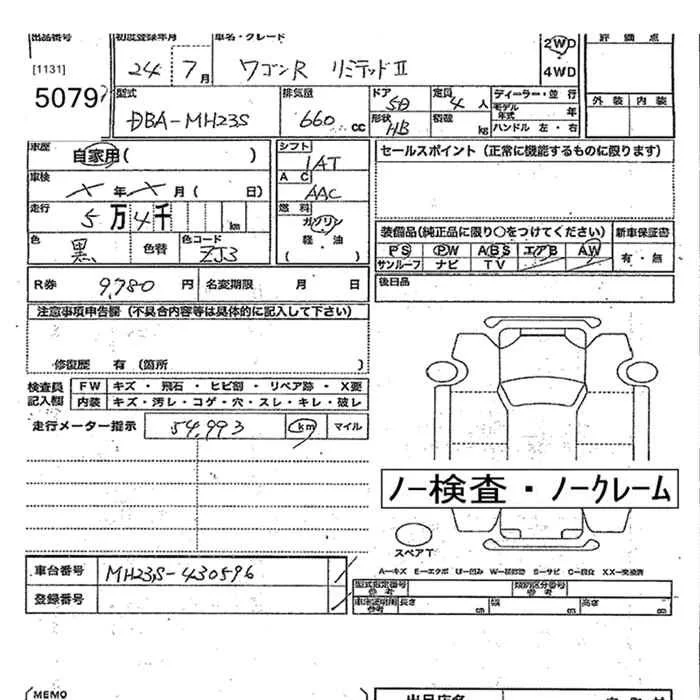 出品番号 初度登録年月 車名・グレード 評価点
[1131] 24 7月 ワゴンR リミテッドⅡ 2WD 4WD
5079 型式 排気量 ドア 5D 定員 4人 ディーラー・並行 外装 内装
DBA-MH23S 660cc 形状 HB 積載 kg モデル年式 年
ハンドル 左・右
車歴 自家用( ) シフト IAT セールスポイント(正常に機能するものに限ります)
車検 × 年 × 月( 日) AC AAC
走行 5万4千 km 燃料 ガソリン 装備品(純正品に限り○をつけてください) 新車保証書
色 黒 色替 色コード ZJ3 軽油 PS PW ABS エアB AW 有・無
( ) サンルーフ ナビ TV
R券 9,780円 名変期限 月 日 後日品
注意事項申告欄(不具合内容等は具体的に記入して下さい)
修復歴 有(箇所 )
検査員記入欄 FW キズ・飛石・ヒビ割・リペア跡・X要
内装 キズ・汚レ・コゲ・穴・スレ・キレ・破レ
走行メーター指示 54,993 km マイル
ノー検査・ノークレーム
スペアT
A-キズ E-エクボ U-凹み W-補修跡 S-サビ C-腐食 XX-交換済
車台番号 MH23S-430596
登録番号
型式指定番号 参考 類別区分番号 参考
長さ cm 幅 cm 高さ cm
MEMO 出品店名